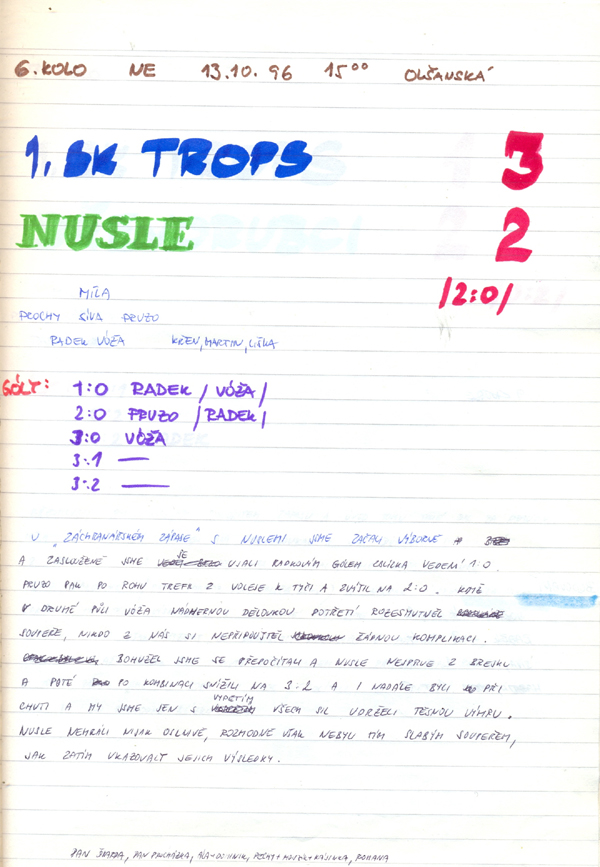 6. KOLO NE 13.10.96 15⁰⁰ OLŠANSKÁ
1. SK TROPS 3
NUSLE 2
/2:0/
MÍLA
PROCHY SÍVA PRUZO
RADEK VÓŽA KŘEN, MARTIN, LIŠKA
GÓLY:
1:0 RADEK /VÓŽA/
2:0 PRUZO /RADEK/
3:0 VÓŽA
3:1 —
3:2 —
V "ZÁCHRANÁŘSKÉM ZÁPASE" S NUSLEMI JSME ZAČALI VÝBORNĚ
A ZASLOUŽENĚ JSME SE UJALI RADKOVÝM GÓLEM VEDENÍ 1:0.
PRUZO PAK PO ROHU TREFIL Z VOLEJE K TYČI A ZVÝŠIL NA 2:0. KDYŽ
V DRUHÉ PŮLI VÓŽA NÁDHERNOU DĚLOVKOU POTŘETÍ ROZESMUTNIL
SOUPEŘE, NIKDO Z NÁS SI NEPŘIPOUŠTĚL ŽÁDNOU KOMPLIKACI.
BOHUŽEL JSME SE PŘEPOČÍTALI A NUSLE NEJPRVE Z BREJKU
A POTÉ PO KOMBINACI SNÍŽILI NA 3:2 A I NADÁLE BYLI PŘI
CHUTI A MY JSME JEN S VYPĚTÍM VŠECH SIL UDRŽELI TĚSNOU VÝHRU.
NUSLE NEHRÁLI NIJAK OSLNIVĚ, ROZHODNĚ VŠAK NEBYLI TÍM SLABÝM SOUPEŘEM,
JAK ZATÍM UKAZOVALY JEJICH VÝSLEDKY.
JAN ŠKARDA, JAN PROCHÁZKA, ROMANA